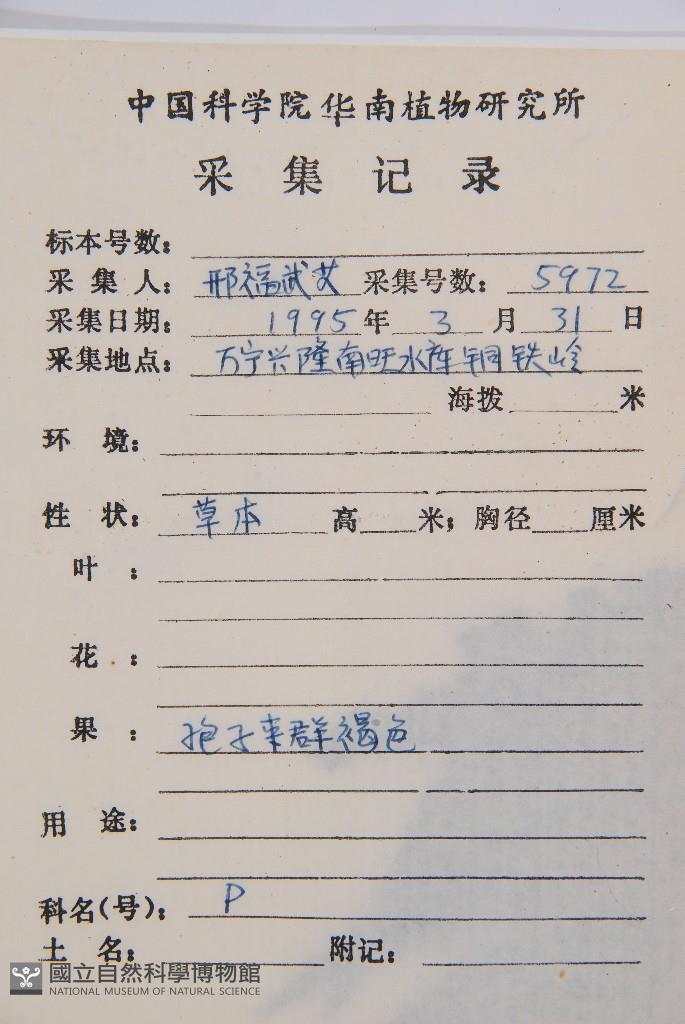 中国科学院华南植物研究所
采集记录
标本号数:
采集人: 邢福武 采集号数: 5972
采集日期: 1995年 3 月 31 日
采集地点: 万宁兴隆南旺水库铜铁岭
海拨 米
环境:
性状: 草本 高 米; 胸径 厘米
叶:
花:
果: 孢子未群褐色
用途:
科名(号): P
土名: 附记:
國立自然科學博物館
NATIONAL MUSEUM OF NATURAL SCIENCE